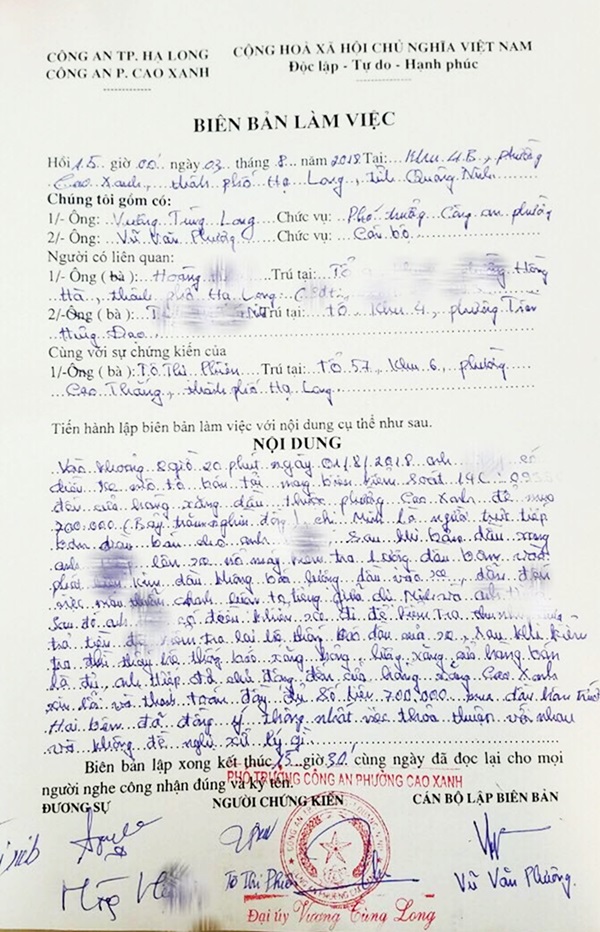 CÔNG AN TP. HẠ LONG
CỘNG HOÀ XÃ HỘI CHỦ NGHĨA VIỆT NAM
CÔNG AN P. CAO XANH
Độc lập - Tự do - Hạnh phúc
BIÊN BẢN LÀM VIỆC
Hồi 15 giờ 00 ngày 03 tháng 8 năm 2018 Tại: Khu 4B, phường
Cao Xanh, thành phố Hạ Long, tỉnh Quảng Ninh
Chúng tôi gồm có:
1/- Ông: Vương Tùng Long Chức vụ: Phó trưởng Công an phường
2/- Ông: Vũ Văn Phường Chức vụ: Cán bộ
Người có liên quan:
1/- Ông (bà): Hoàng Trú tại: Tổ Hồng
Hà, thành phố Hạ Long
2/-Ông (bà): Trú tại: tổ, Khu 4, phường Trần
Hưng Đạo
Cùng với sự chứng kiến của
1/-Ông (bà): Tô Thị Phiên Trú tại: Tổ 57, Khu 6, phường
Cao Thắng, thành phố Hạ Long
Tiến hành lập biên bản làm việc với nội dung cụ thể như sau.
NỘI DUNG
Vào khoảng giờ 20 phút ngày 01/8/2018 anh có
điều xe mô tô bán tải mang biển kiểm soát 14C
đến cửa hàng xăng dầu thuộc phường Cao Xanh để mua
700.000 (Bảy trăm nghìn đồng) chị Minh là người trực tiếp
bơm dầu bán cho anh Sau khi bơm dầu xong
anh lên xe nổ máy kiểm tra lượng dầu bơm vào
phát kim dầu không báo lượng dầu vào xe, dẫn đến
việc tranh luận to tiếng giữa chị Minh và anh
Sau đó anh có điều khiển xe đi để kiểm tra
trả tiền để kiểm tra lại hệ thống báo dầu của xe, sau khi kiểm
tra thì thấy hệ thống báo xăng hỏng, lượng xăng cửa hàng bán
là đủ, anh đã chủ động đến cửa hàng xăng Cao Xanh
xin lỗi và thanh toán đầy đủ số tiền 700.000 mua dầu hôm trước
Hai bên đã đồng ý thống nhất việc thoả thuận với nhau
và không đề nghị xử lý gì
Biên bản lập xong kết thúc 15 giờ 30 cùng ngày đã đọc lại cho mọi
PHÓ TRƯỞNG CÔNG AN PHƯỜNG CAO XANH
người nghe công nhận đúng và ký tên.
ĐƯƠNG SỰ NGƯỜI CHỨNG KIẾN CÁN BỘ LẬP BIÊN BẢN
Tô Thị Phiên
Vũ Văn Phường
Đại úy Vương Tùng Long